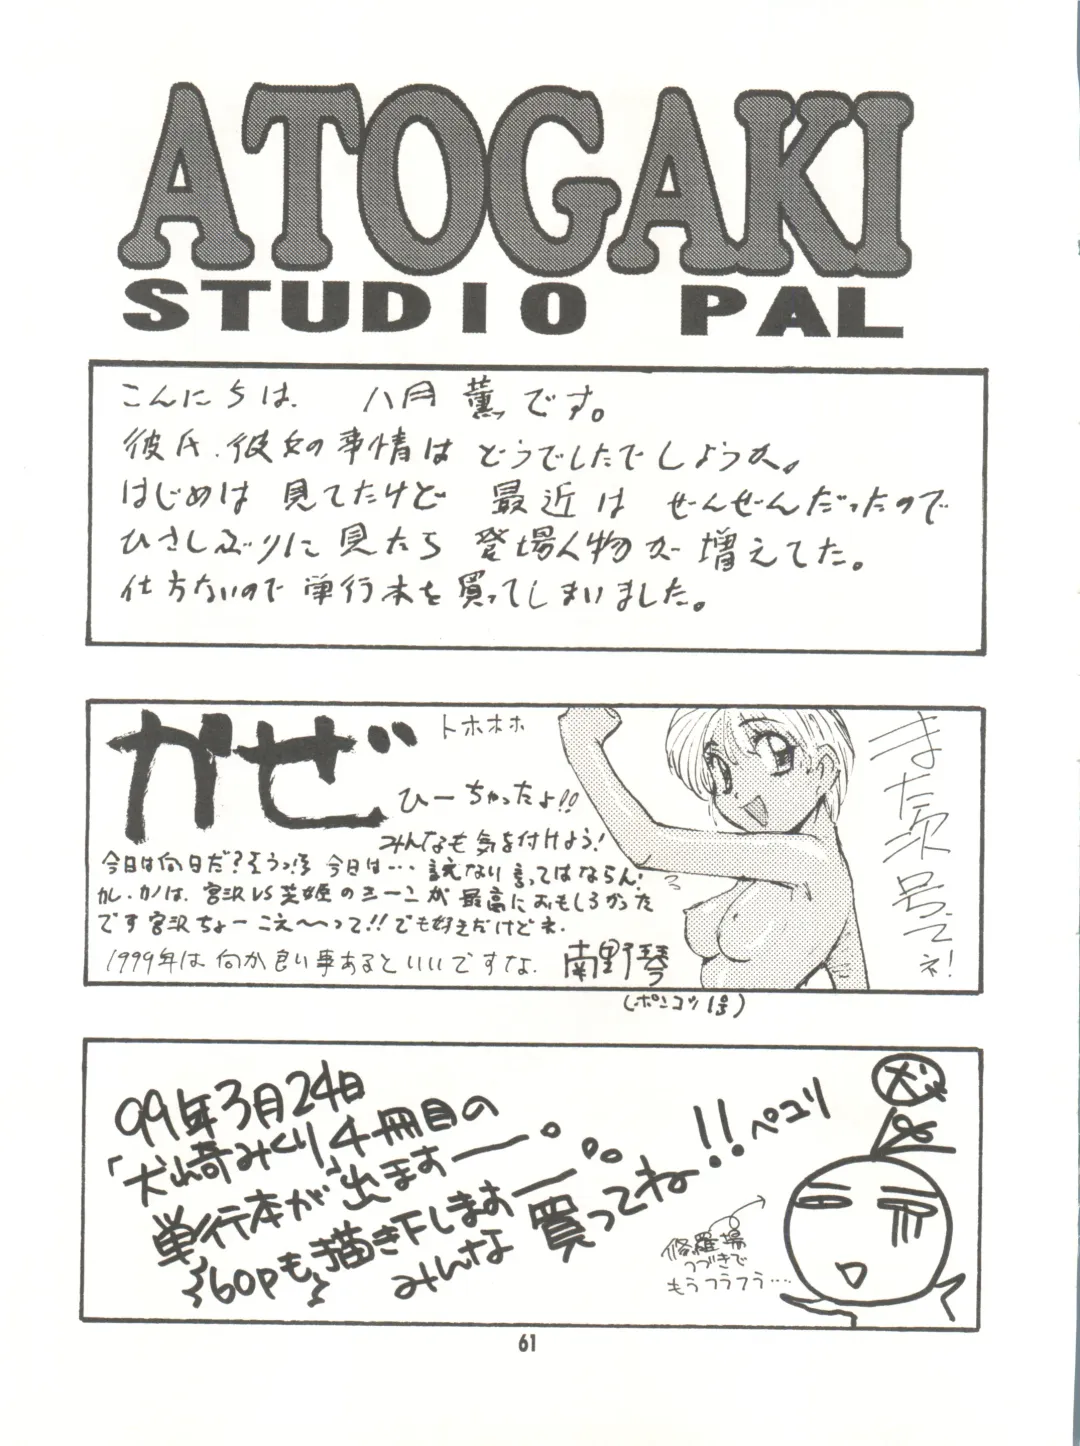 ATOGAKI
STUDIO PAL
こんにちは、 八月 薫です。
彼氏、彼女の事情は どうでしたでしょうか。
はじめは 見てたけど 最近は ぜんぜんだったので
ひさしぶりに見たら 登場人物が増えてた。
仕方ないので 単行本を買ってしまいました。
かぜ
トホホホ
ひーちゃったよ!!
みんなも気を付けよう!
今日は何日だ? 今日は… 言えない言ってはならん!
カレ・カノは、宮沢VS芝姫のシーンが最高におもしろかった
です宮沢ちょーこえ〜って!! でも好きだけどネ.
1999年は何か良い事あるといいですな.
南野琴
(ポンコツ1号)
また次号でネ!
99年3月24日
「犬崎みくり」4冊目の
単行本が出ますー。
60pも描き下しますー。
みんな買ってね!! ペコリ
犬
修羅場
つづきで
もうフラフラ…
61